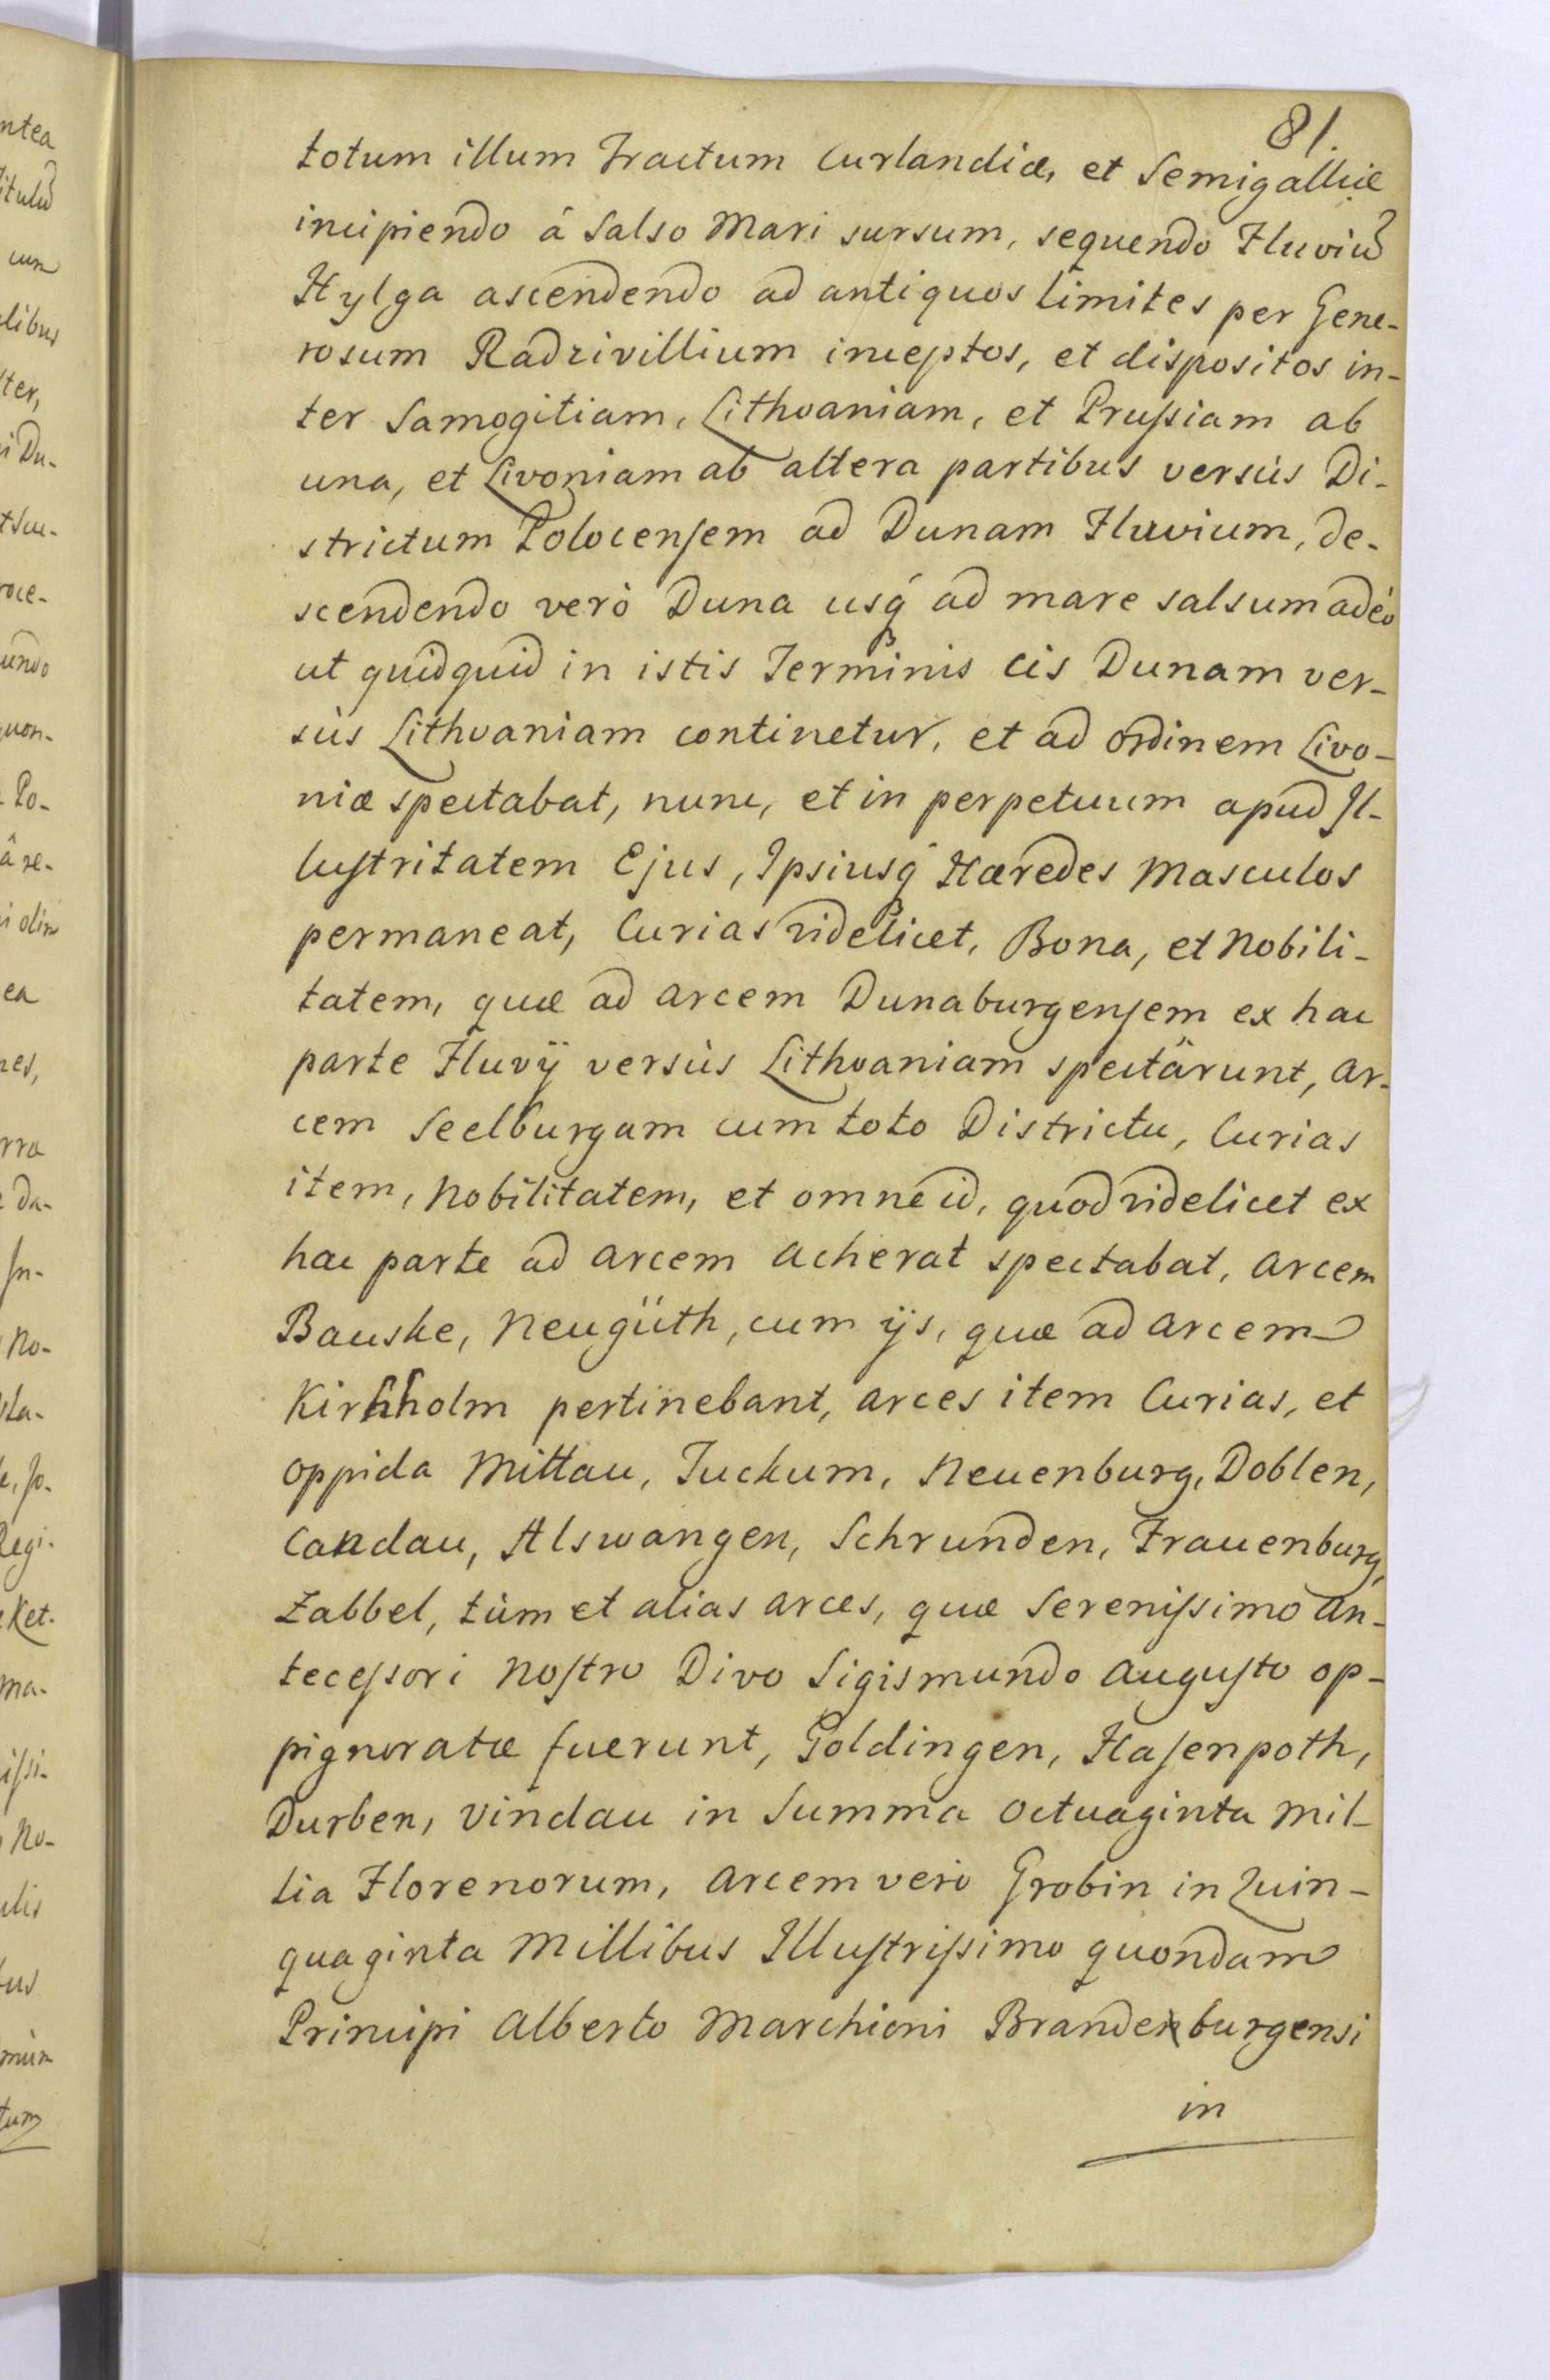 81.
totum illum Tractum Curlandiæ, et Semigalliæ
incipiendo á Salso Mari sursum, sequendo Fluviū
Hylga ascendendo ad antiquos limites per Gene-
rosum Radzivillium inceptos, et dispositos in-
ter Samogitiam, Lithvaniam, et Prußiam ab
una, et Livoniam ab altera partibus versùs Di-
strictum Polocensem ad Dunam Fluvium, de-
scendendo verò Duna usq́ ad mare salsum adeò
ut quidquid in istis Terminis cis Dunam ver-
sùs Lithvaniam continetur, et ad ordinem Livo-
niæ spectabat, nunc, et in perpetuum apud Il-
lustritatem Ejus, Ipsiusq́ Hæredes Masculos
permaneat, Curias videlicet, Bona, et Nobili-
tatem, quæ ad arcem Dunaburgensem ex hac
parte Fluvÿ versùs Lithvaniam spectârunt, ar-
cem Seelburgam cum toto Districtu, Curias
item, Nobilitatem, et omne id, quod videlicet ex
hac parte ad arcem Acherat spectabat, arcem
Bauske, Neugüth, cum ÿs, quæ ad arcem
Kirhholm pertinebant, arces item Curias, et
oppida Mittau, Tuckum, Neuenburg, Doblen,
Candau, Alswangen, Schrunden, Frauenburg,
Zabbel, tùm et alias arces, quæ Serenißimo an-
tecessori Nostro Divo Sigismundo Augusto op-
pignoratæ fuerunt, Goldingen, Hasenpoth,
Durben, Vindau in Summa octuaginta mil-
lia Florenorum, arcem verò Grobin in Quin-
quaginta Millibus Illustrißimo quondam
Principi Alberto Marchioni Brandenburgensi
in